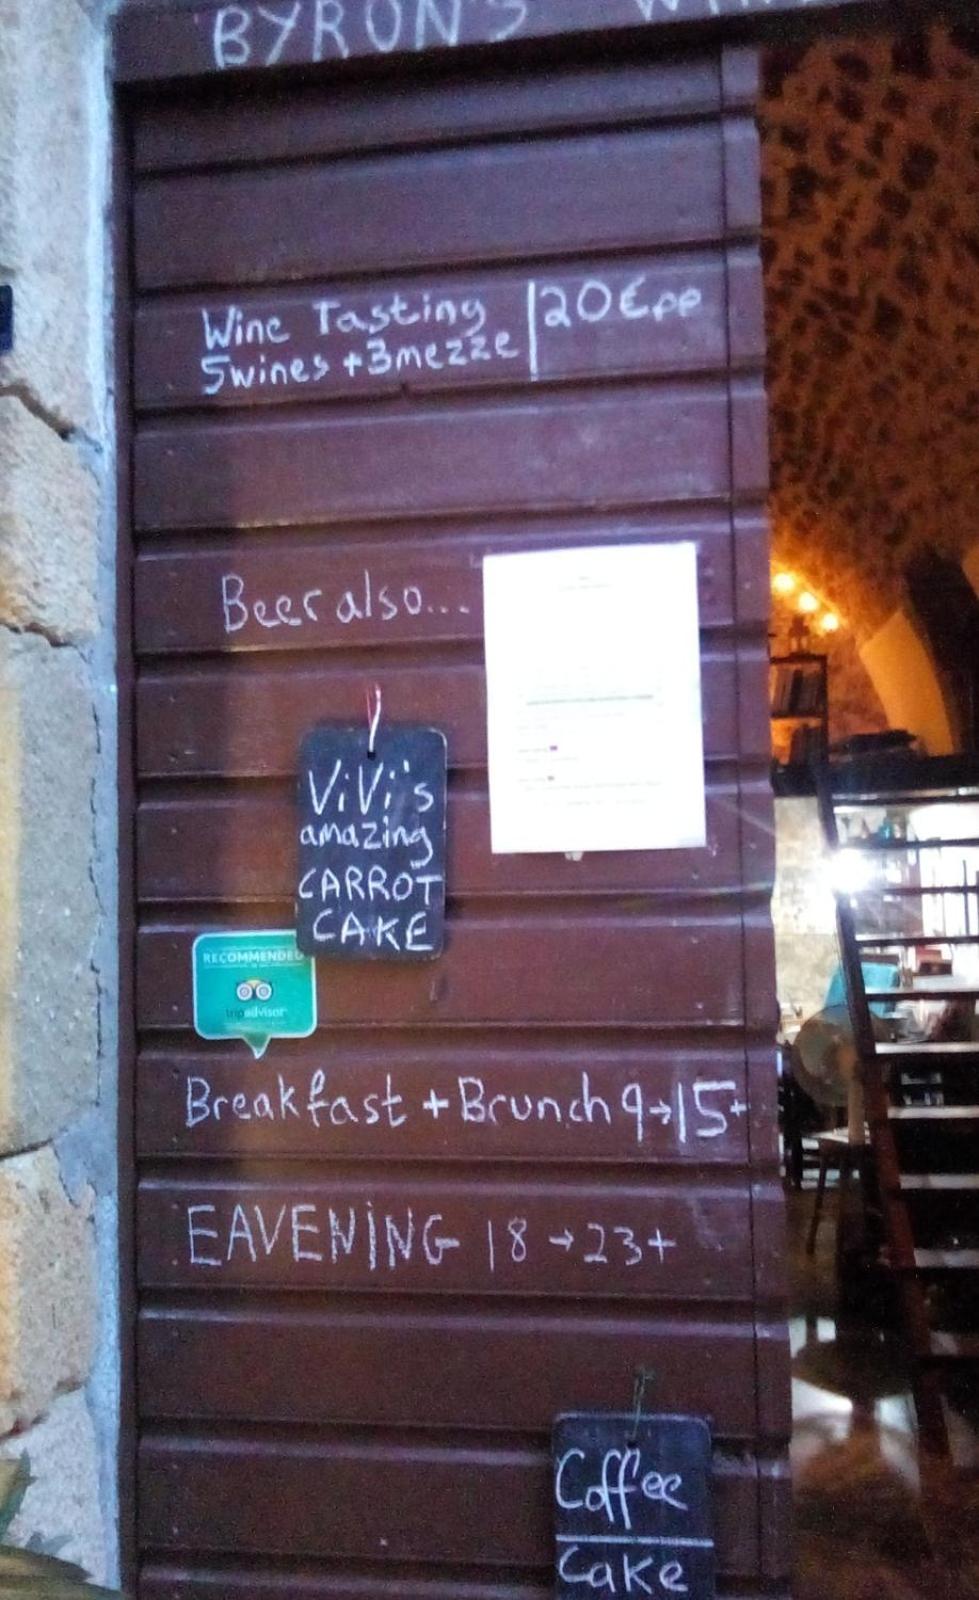 BYRON'S
Wine Tasting | 20€pp
5wines +3mezze
Beer also...
ViVi's
amazing
CARROT
CAKE
RECOMMENDED
tripadvisor
Breakfast + Brunch 9→15+
EAVENING 18 →23+
Coffee
Cake